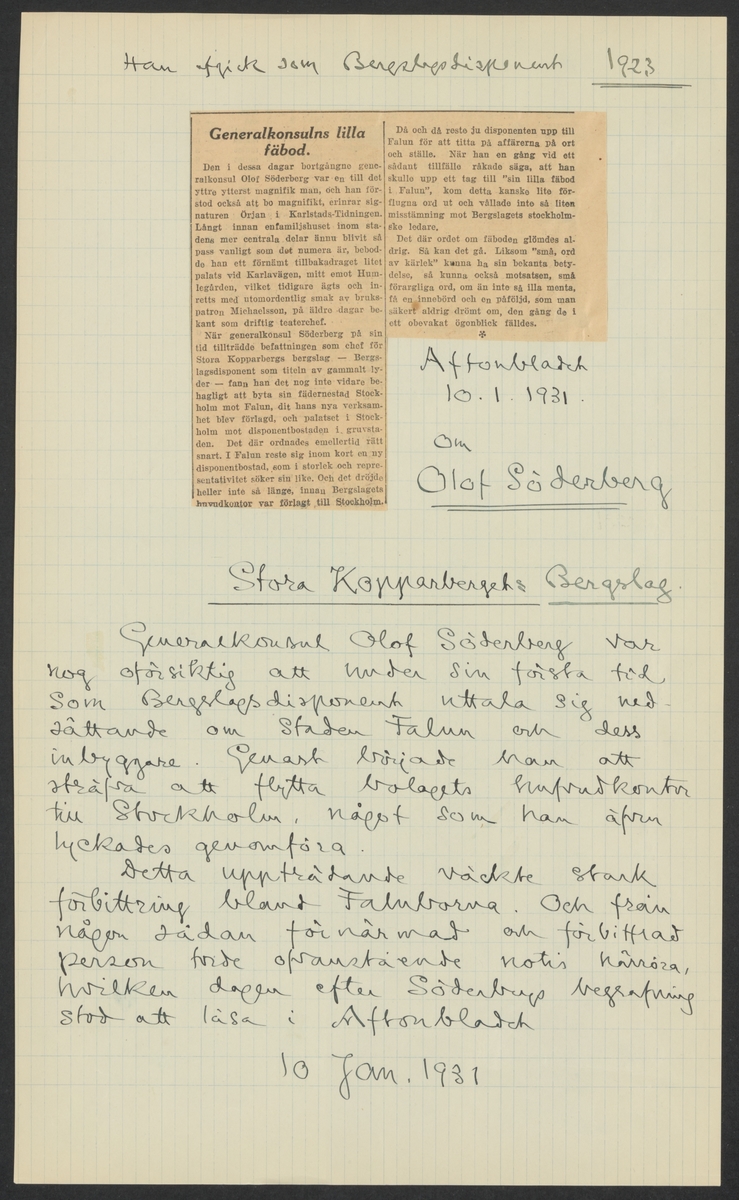 Han afgick som Bergslagsdisponent 1923
Generalkonsulns lilla
fäbod.
Den i dessa dagar bortgångne gene-
ralkonsul Olof Söderberg var en till det
yttre ytterst magnifik man, och han för-
stod också att bo magnifikt, erinrar sig-
naturen Örjan i Karlstads-Tidningen.
Långt innan enfamiljshuset inom sta-
dens mer centrala delar ännu blivit så
pass vanligt som det numera är, bebod-
de han ett förnämt tillbakadraget litet
palats vid Karlavägen, mitt emot Hum-
legården, vilket tidigare ägts och in-
retts med utomordentlig smak av bruks-
patron Michaelsson, på äldre dagar be-
kant som driftig teaterchef.
När generalkonsul Söderberg på sin
tid tillträdde befattningen som chef för
Stora Kopparbergs bergslag — Bergs-
lagsdisponent som titeln av gammalt ly-
der — fann han det nog inte vidare be-
hagligt att byta sin fädernestad Stock-
holm mot Falun, dit hans nya verksam-
het blev förlagd, och palatset i Stock-
holm mot disponentbostaden i gruvsta-
den. Det där ordnades emellertid rätt
snart. I Falun reste sig inom kort en ny
disponentbostad, som i storlek och repre-
sentativitet söker sin like. Och det dröjde
heller inte så länge, innan Bergslagets
huvudkontor var förlagt till Stockholm.
Då och då reste ju disponenten upp till
Falun för att titta på affärerna på ort
och ställe. När han en gång vid ett
sådant tillfälle råkade säga, att han
skulle upp ett tag till "sin lilla fäbod
i Falun", kom detta kanske lite för-
flugna ord ut och vållade inte så liten
misstämning mot Bergslagets stockholm-
ske ledare.
Det där ordet om fäboden glömdes al-
drig. Så kan det gå. Liksom "små, ord
av kärlek" kunna ha sin bekanta bety-
delse, så kunna också motsatsen, små
förargliga ord, om än inte så illa menta,
få en innebörd och en påföljd, som man
säkert aldrig drömt om, den gång de i
ett obevakat ögonblick fälldes.
Aftonbladet
10.1.1931.
om
Olof Söderberg
Stora Kopparbergets Bergslag.
Generalkonsul Olof Söderberg var
nog oförsiktig att under sin första tid
som Bergslagsdisponent uttala sig ned-
sättande om staden Falun och dess
inbyggare. Genast började han att
sträfva att flytta bolagets hufvudkontor
till Stockholm, något som han äfven
lyckades genomföra.
Detta uppträdande väckte stark
förbittring bland Faluborna. Och från
någon sådan förnärmad och förbittrad
person torde ofvanstående notis härröra,
hvilken dagen efter Söderbergs begrafning
stod att läsa i Aftonbladet
10 Jan. 1931